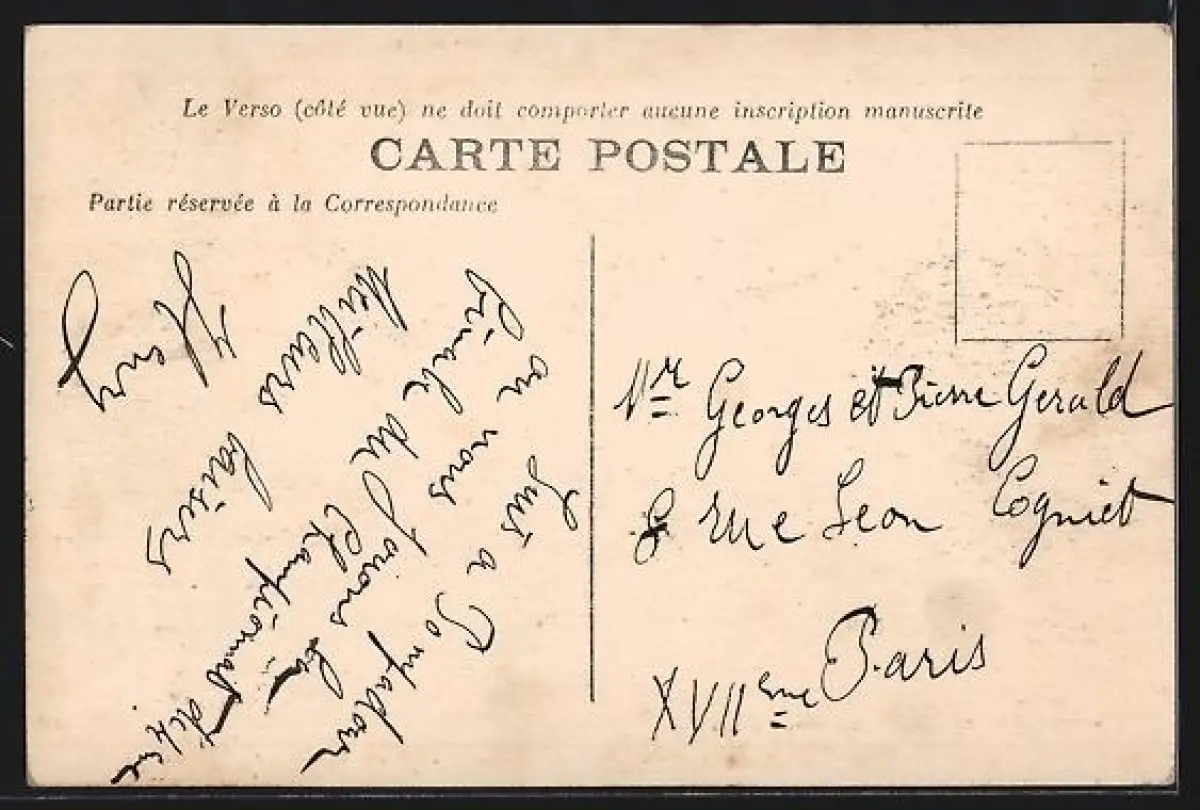 Le Verso (côté vue) ne doit comporter aucune inscription manuscrite
CARTE POSTALE
Partie réservée à la Correspondance
Suis a Pompadour
ou nous jouons la
finale du Championnat
Meilleurs baisers
Henry
Mr Georges et Pierre Gerald
8 rue Leon Cogniet
XVIIeme Paris